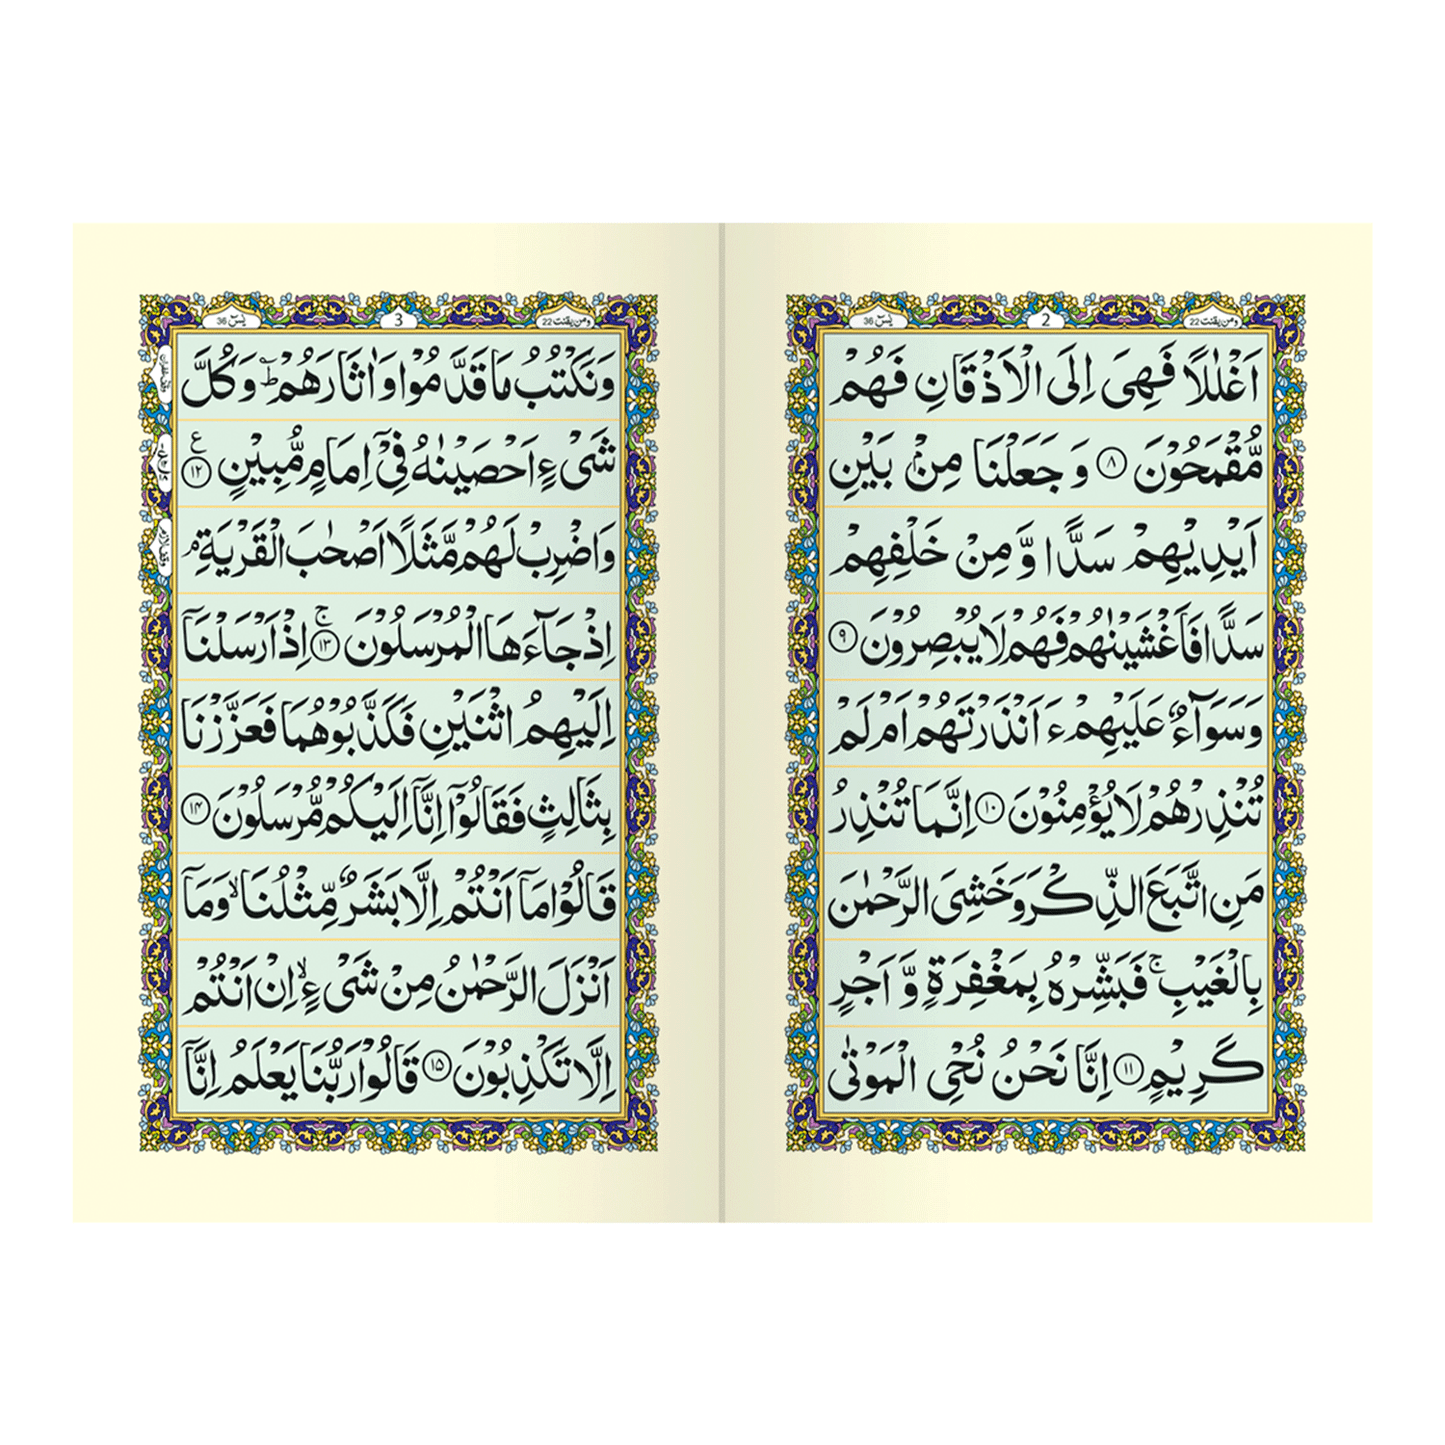 ومن یقنت 22
2
یٰسٓ 36
اَغْلٰلًا فَهِیَ اِلَی الْاَذْقَانِ فَهُمْ
مُّقْمَحُوْنَ ۸ وَ جَعَلْنَا مِنْۢ بَیْنِ
اَیْدِیْهِمْ سَدًّا وَّ مِنْ خَلْفِهِمْ
سَدًّا فَاَغْشَیْنٰهُمْ فَهُمْ لَا یُبْصِرُوْنَ ۹
وَسَوَآءٌ عَلَیْهِمْ ءَاَنْذَرْتَهُمْ اَمْ لَمْ
تُنْذِرْهُمْ لَا یُؤْمِنُوْنَ ۱۰ اِنَّمَا تُنْذِرُ
مَنِ اتَّبَعَ الذِّكْرَ وَخَشِیَ الرَّحْمٰنَ
بِالْغَیْبِ ۚ فَبَشِّرْهُ بِمَغْفِرَةٍ وَّ اَجْرٍ
كَرِیْمٍ ۱۱ اِنَّا نَحْنُ نُحْیِ الْمَوْتٰی
ومن یقنت 22
3
یٰسٓ 36
وَنَكْتُبُ مَا قَدَّمُوْا وَاٰثَارَهُمْ ؕ وَكُلَّ
شَیْءٍ اَحْصَیْنٰهُ فِیْۤ اِمَامٍ مُّبِیْنٍ ۱۲ ع
وَاضْرِبْ لَهُمْ مَّثَلًا اَصْحٰبَ الْقَرْیَةِ ۘ
وقف لازم
اِذْ جَآءَهَا الْمُرْسَلُوْنَ ۱۳ ج اِذْ اَرْسَلْنَاۤ
اِلَیْهِمُ اثْنَیْنِ فَكَذَّبُوْهُمَا فَعَزَّزْنَا
بِثَالِثٍ فَقَالُوْۤا اِنَّاۤ اِلَیْكُمْ مُّرْسَلُوْنَ ۱۴
قَالُوْا مَاۤ اَنْتُمْ اِلَّا بَشَرٌ مِّثْلُنَا ۙ وَمَاۤ
اَنْزَلَ الرَّحْمٰنُ مِنْ شَیْءٍ ۙ اِنْ اَنْتُمْ
اِلَّا تَكْذِبُوْنَ ۱۵ قَالُوْا رَبُّنَا یَعْلَمُ اِنَّاۤ